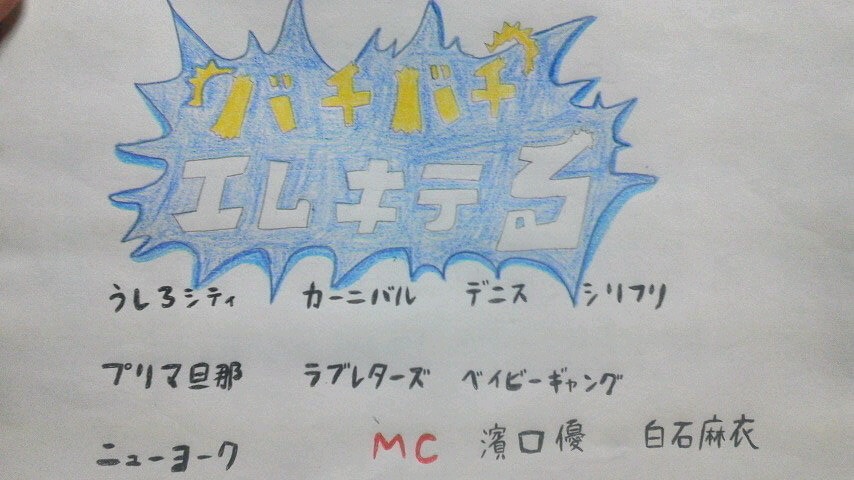 バチバチ
エレキテる
うしろシティ カーニバル デニス シリフリ
プリマ旦那 ラブレターズ ベイビーギャング
ニューヨーク MC 濱口優 白石麻衣